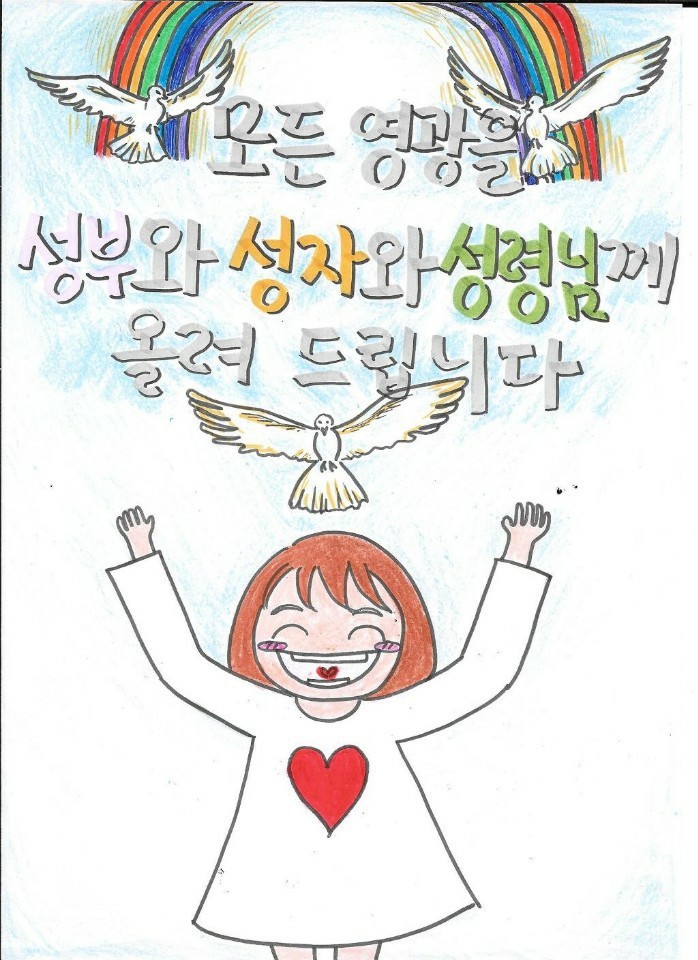 모든 영광을
성부와 성자와 성령님께
올려 드립니다